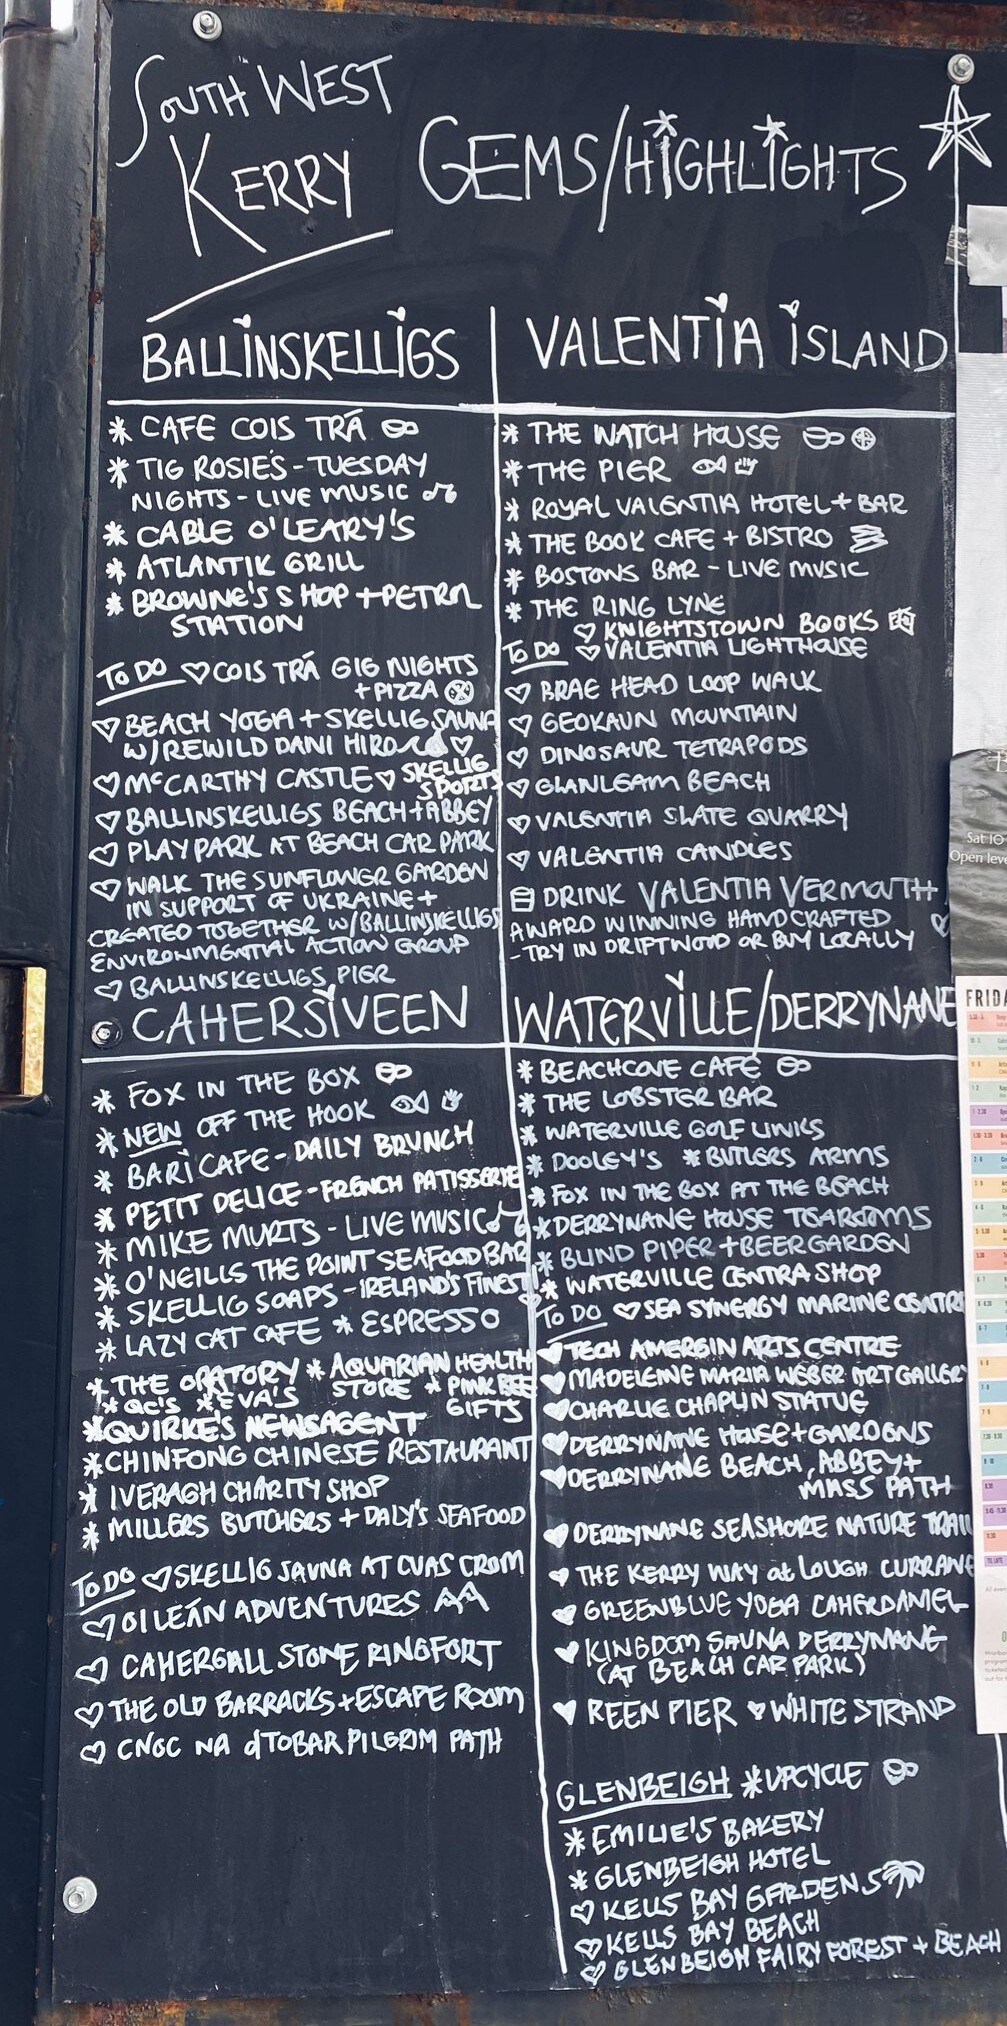 SOUTH WEST
KERRY
GEMS/HIGHLIGHTS
BALLINSKELLIGS
* CAFE COIS TRÁ
* TIG ROSIE'S - TUESDAY
NIGHTS - LIVE MUSIC
* CABLE O'LEARY'S
* ATLANTIK GRILL
* BROWNE'S SHOP + PETROL
STATION
TO DO ♡ COIS TRÁ GIG NIGHTS
+ PIZZA
♡ BEACH YOGA + SKELLIG SAUNA
W/REWILD DANI HIRO ♡
♡ McCARTHY CASTLE ♡ SKELLIG
SPORTS
♡ BALLINSKELLIGS BEACH + ABBEY
♡ PLAYPARK AT BEACH CAR PARK
♡ WALK THE SUNFLOWER GARDEN
IN SUPPORT OF UKRAINE +
CREATED TOGETHER W/BALLINSKELLIGS
ENVIRONMENTAL ACTION GROUP
♡ BALLINSKELLIGS PIER
VALENTIA ISLAND
* THE WATCH HOUSE
* THE PIER
* ROYAL VALENTIA HOTEL + BAR
* THE BOOK CAFE + BISTRO
* BOSTONS BAR - LIVE MUSIC
* THE RING LYNE
♡ KNIGHTSTOWN BOOKS
TO DO ♡ VALENTIA LIGHTHOUSE
♡ BRAE HEAD LOOP WALK
♡ GEOKAUN MOUNTAIN
♡ DINOSAUR TETRAPODS
♡ GLANLEAM BEACH
♡ VALENTIA SLATE QUARRY
♡ VALENTIA CANDLES
DRINK VALENTIA VERMOUTH
AWARD WINNING HANDCRAFTED ♡
- TRY IN DRIFTWOOD OR BUY LOCALLY
CAHERSIVEEN
* FOX IN THE BOX
* NEW OFF THE HOOK
* BARI CAFE - DAILY BRUNCH
* PETIT DELICE - FRENCH PATISSERIE
* MIKE MURTS - LIVE MUSIC
* O'NEILLS THE POINT SEAFOOD BAR
* SKELLIG SOAPS - IRELAND'S FINEST
* LAZY CAT CAFE * ESPRESSO
* THE ORATORY * AQUARIAN HEALTH
STORE * PINK BEE
GIFTS
* QC'S * EVA'S
* QUIRKE'S NEWSAGENT
* CHINFONG CHINESE RESTAURANT
* IVERAGH CHARITY SHOP
* MILLERS BUTCHERS + DALY'S SEAFOOD
TO DO ♡ SKELLIG SAUNA AT CUAS CROM
♡ OILEÁN ADVENTURES
♡ CAHERGALL STONE RINGFORT
♡ THE OLD BARRACKS + ESCAPE ROOM
♡ CNOC NA dTOBAR PILGRIM PATH
WATERVILLE/DERRYNANE
* BEACHCOVE CAFÉ
* THE LOBSTER BAR
* WATERVILLE GOLF LINKS
* DOOLEY'S * BUTLERS ARMS
* FOX IN THE BOX AT THE BEACH
* DERRYNANE HOUSE TEAROOMS
* BLIND PIPER + BEERGARDEN
* WATERVILLE CENTRA SHOP
TO DO ♡ SEA SYNERGY MARINE CENTRE
♥ TECH AMERGIN ARTS CENTRE
♥ MADELEINE MARIA WEBER ART GALLERY
♥ CHARLIE CHAPLIN STATUE
♥ DERRYNANE HOUSE + GARDENS
♥ DERRYNANE BEACH, ABBEY +
MASS PATH
♥ DERRYNANE SEASHORE NATURE TRAIL
♥ THE KERRY WAY at LOUGH CURRANE
♥ GREENBLUE YOGA CAHERDANIEL
♥ KINGDOM SAUNA DERRYNANE
(AT BEACH CAR PARK)
♥ REEN PIER ♥ WHITE STRAND
GLENBEIGH * UPCYCLE
* EMILIE'S BAKERY
* GLENBEIGH HOTEL
♡ KELLS BAY GARDENS
♡ KELLS BAY BEACH
♡ GLENBEIGH FAIRY FOREST + BEACH
Sat 10
FRIDA